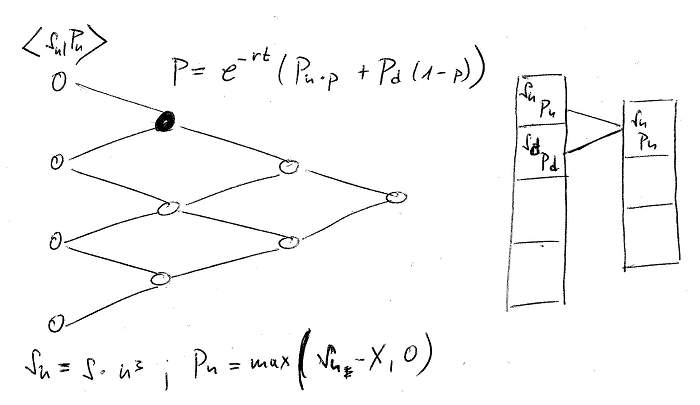 ⟨Su, Pu⟩
P = e^-rt (Pu·p + Pd (1-p))
Su Pu
Sd Pd
Su Pu
Su = S·u³ ; Pu = max(Su - X, 0)